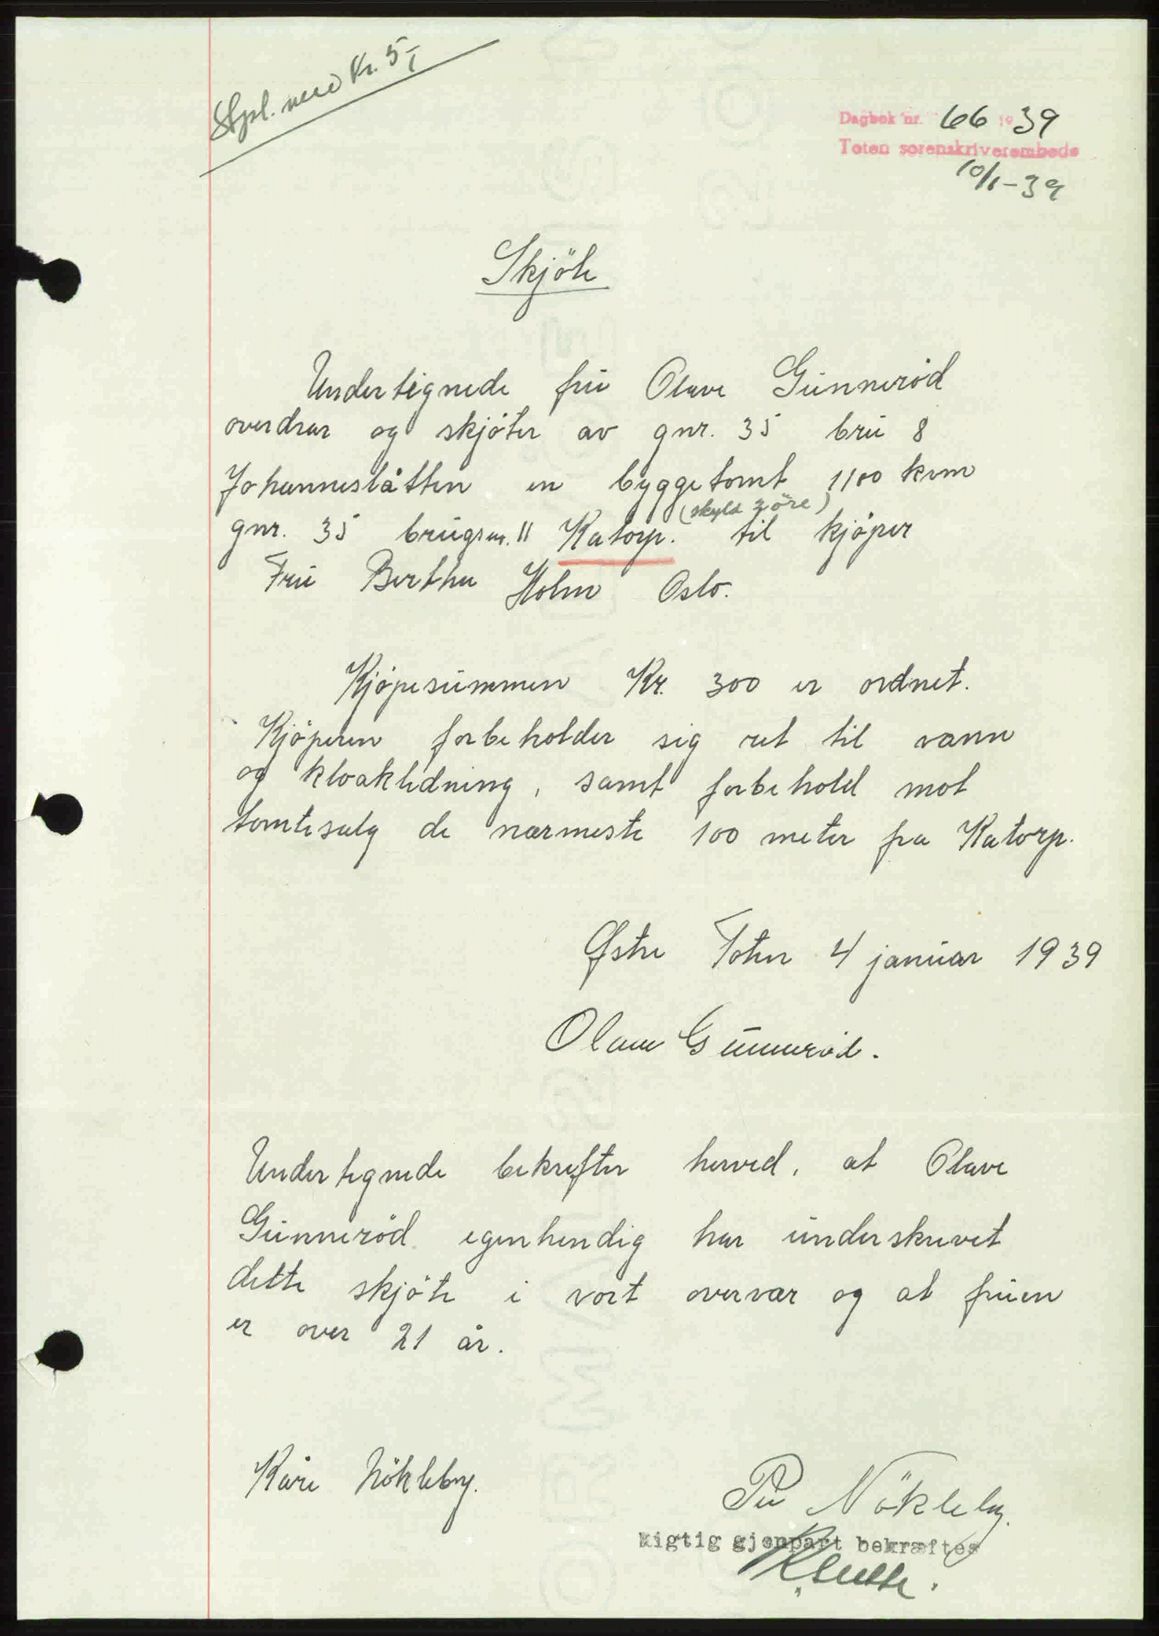 Stpl. med Kr. 5,-
Dagbok nr. 66 1939
Toten sorenskriverembede
10/1-39
Skjöte
Undertegnede fru Olave Gunneröd
overdrar og skjöter av gnr. 35 bru 8
Johannesbåtten en byggetomt 1100 kvm
(skyld 3 öre)
gnr. 35 brugsnr. 11 Katorp. til kjöper
Fru Berthe Holm Oslo.
Kjöpesummen Kr. 300 er ordnet.
Kjöperen forbeholder sig ret til vann
og kloakledning, samt forbehold mot
tomtesalg de nærmeste 100 meter fra Katorp.
Østre Toten 4 januar 1939
Olave Gunneröd.
Undertegnede bekrefter herved, at Olave
Gunneröd egenhendig har underskrevet
dette skjöte i vort overvær og at fruen
er over 21 år.
Kåre Nökleby.
Per Nökleby.
Rigtig gjenpart bekræftes